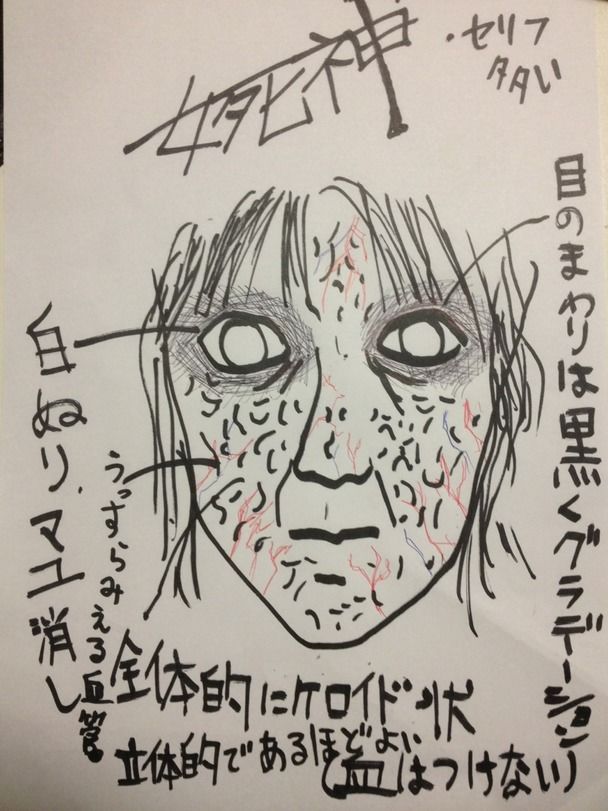 女死神
・セリフ
多い
目のまわりは黒くグラデーション
白ぬり、マユ消し
うっすらみえる血管
全体的にケロイド状
立体的であるほどよい
(血はつけない)